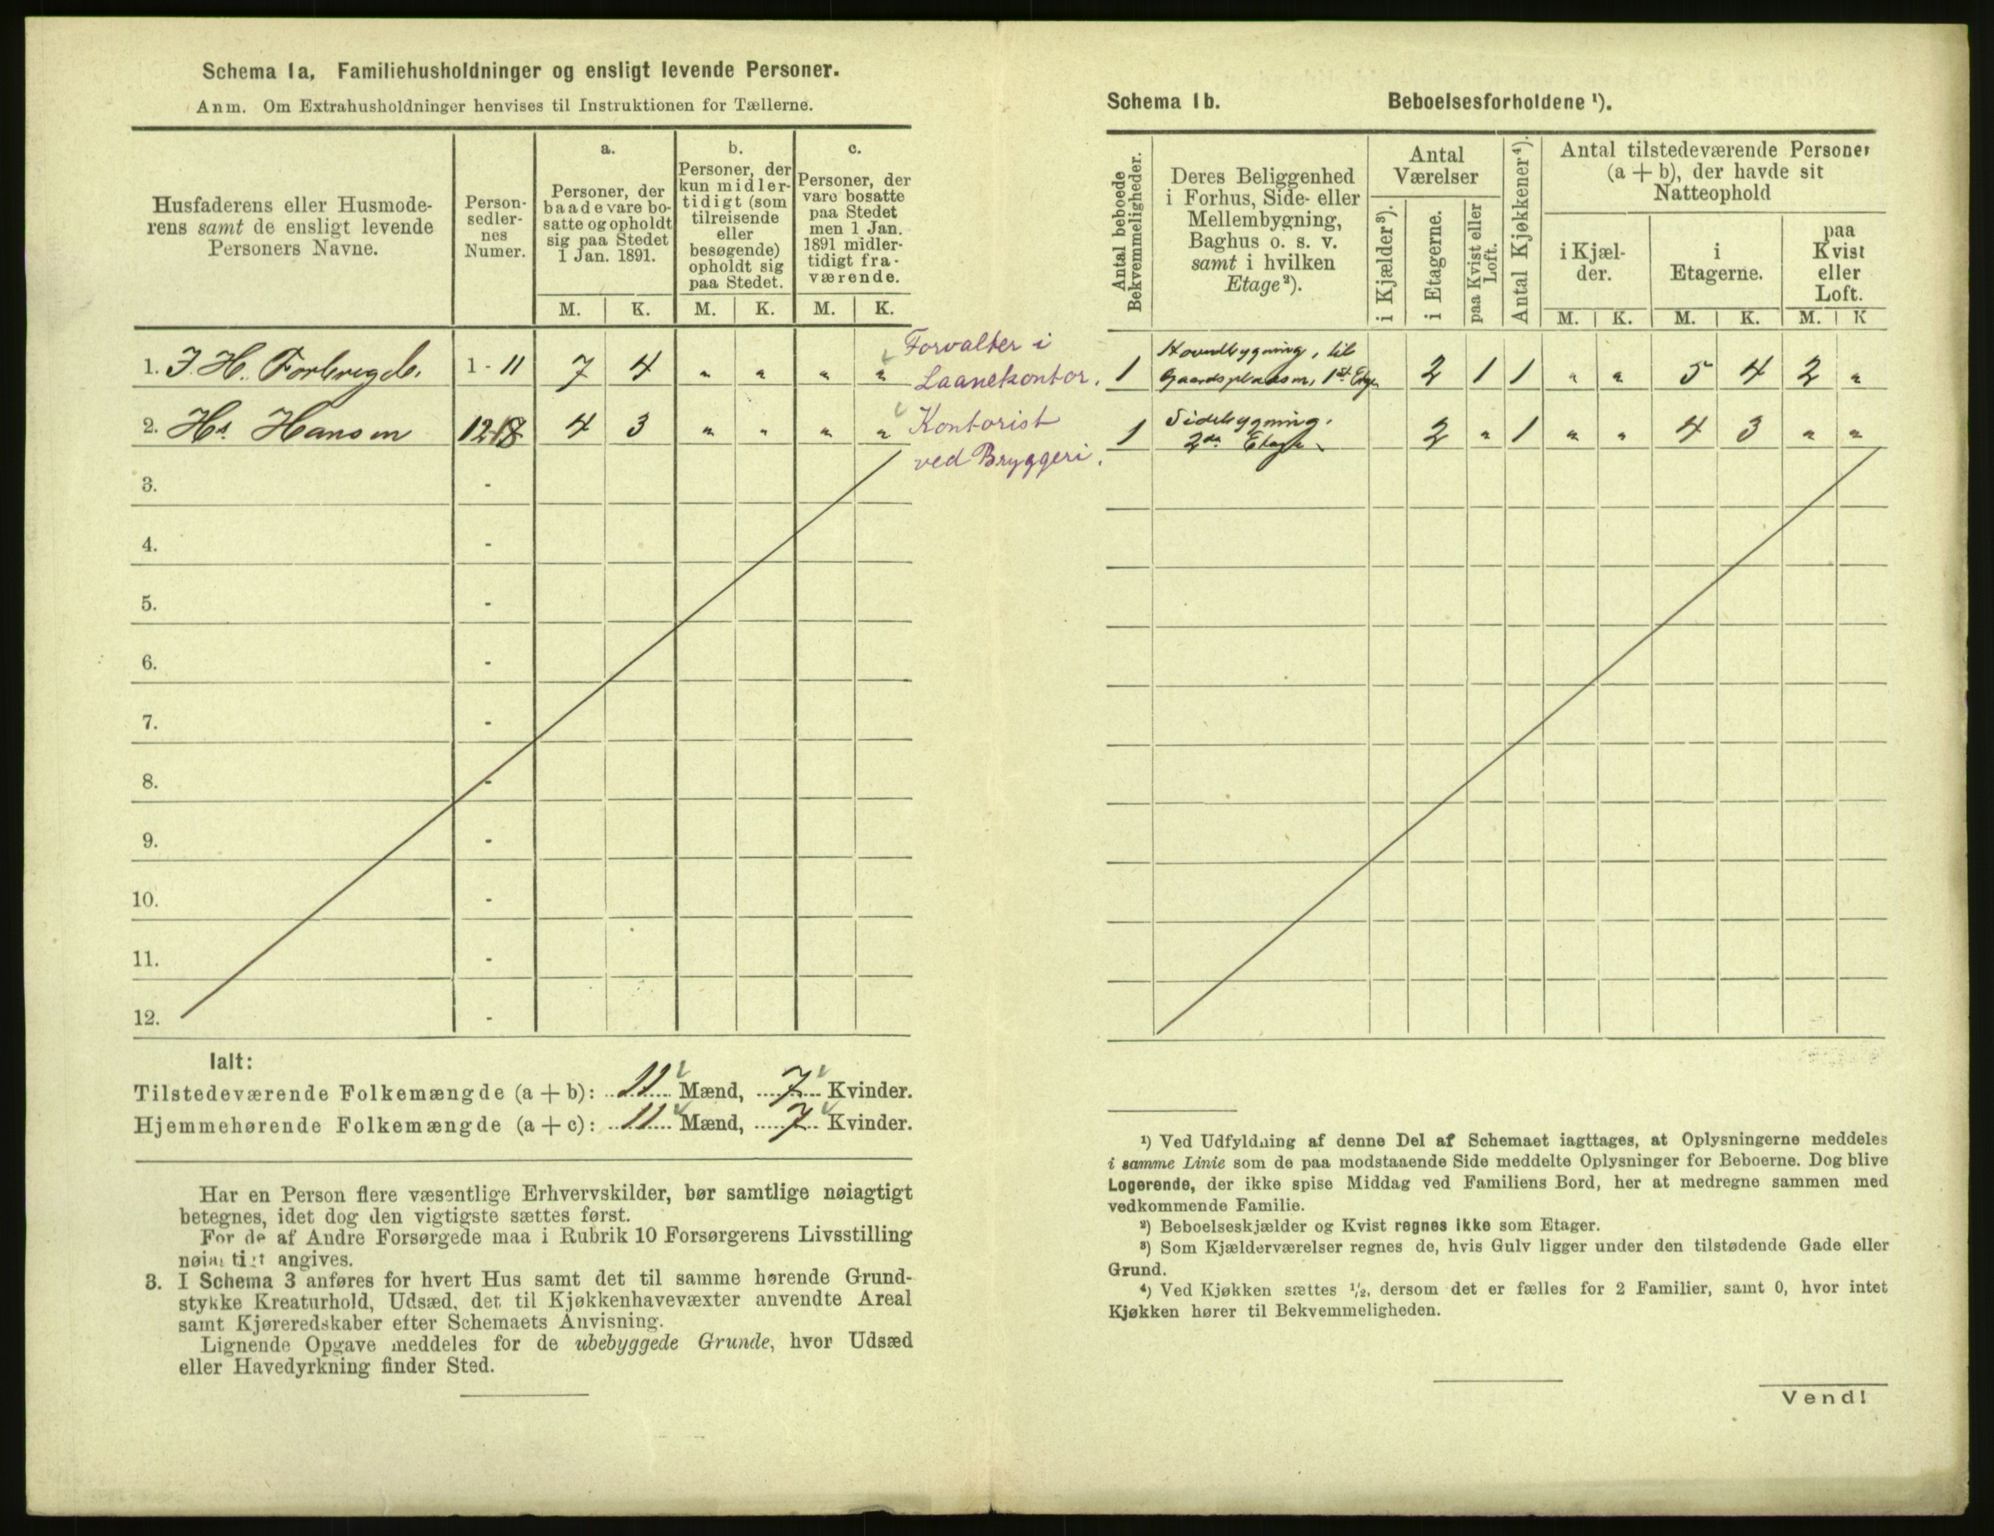 Schema 1a, Familiehusholdninger og ensligt levende Personer.
Anm. Om Extrahusholdninger henvises til Instruktionen for Tællerne.
Husfaderens eller Husmode-
rens samt de ensligt levende
Personers Navne.
Person-
sedler-
nes
Numer.
a.
Personer, der
baade vare bo-
satte og opholdt
sig paa Stedet
1 Jan. 1891.
b.
Personer, der
kun midler-
tidigt (som
tilreisende
eller
besøgende)
opholdt sig
paa Stedet.
c.
Personer, der
vare bosatte
paa Stedet
men 1 Jan.
1891 midler-
tidigt fra-
værende.
M. K. M. K. M. K.
1. J H. 1 - 11 7 4 " " " "
Forvalter i
Laanekontor.
2. Hs Hansen 12-18 4 3 " " " "
Kontorist
ved Bryggeri.
3. -
4. -
5. -
6. -
7. -
8. -
9. -
10. -
11. -
12. -
Ialt:
Tilstedeværende Folkemængde (a + b): 11 Mænd, 7 Kvinder.
Hjemmehørende Folkemængde (a + c): 11 Mænd, 7 Kvinder.
Har en Person flere væsentlige Erhvervskilder, bør samtlige nøiagtigt
betegnes, idet dog den vigtigste sættes først.
For de af Andre Forsørgede maa i Rubrik 10 Forsørgerens Livsstilling
nøiagtigt angives.
3. I Schema 3 anføres for hvert Hus samt det til samme hørende Grund-
stykke Kreaturhold, Udsæd, det til Kjøkkenhavevæxter anvendte Areal
samt Kjøreredskaber efter Schemaets Anvisning.
Lignende Opgave meddeles for de ubebyggede Grunde, hvor Udsæd
eller Havedyrkning finder Sted.
Schema 1b. Beboelsesforholdene ¹).
Antal beboede
Bekvemmeligheder.
Deres Beliggenhed
i Forhus, Side- eller
Mellembygning,
Baghus o. s. v.
samt i hvilken
Etage²).
Antal
Værelser
i Kjælder³).
i Etagerne.
paa Kvist eller
Loft.
Antal Kjøkkener⁴).
Antal tilstedeværende Personer
(a + b), der havde sit
Natteophold
i Kjæl-
der.
i
Etagerne.
paa
Kvist
eller
Loft.
M. K. M. K. M. K
1 Hovedbygning, til
Gaardspladsen, 1st Etage 2 1 1 " " 5 4 2 "
1 Sidebygning,
2den Etage 2 " 1 " " 4 3 " "
¹) Ved Udfyldning af denne Del af Schemaet iagttages, at Oplysningerne meddeles
i samme Linie som de paa modstaaende Side meddelte Oplysninger for Beboerne. Dog blive
Logerende, der ikke spise Middag ved Familiens Bord, her at medregne sammen med
vedkommende Familie.
²) Beboelseskjælder og Kvist regnes ikke som Etager.
³) Som Kjælderværelser regnes de, hvis Gulv ligger under den tilstødende Gade eller
Grund.
⁴) Ved Kjøkken sættes ½, dersom det er fælles for 2 Familier, samt 0, hvor intet
Kjøkken hører til Bekvemmeligheden.
Vend!